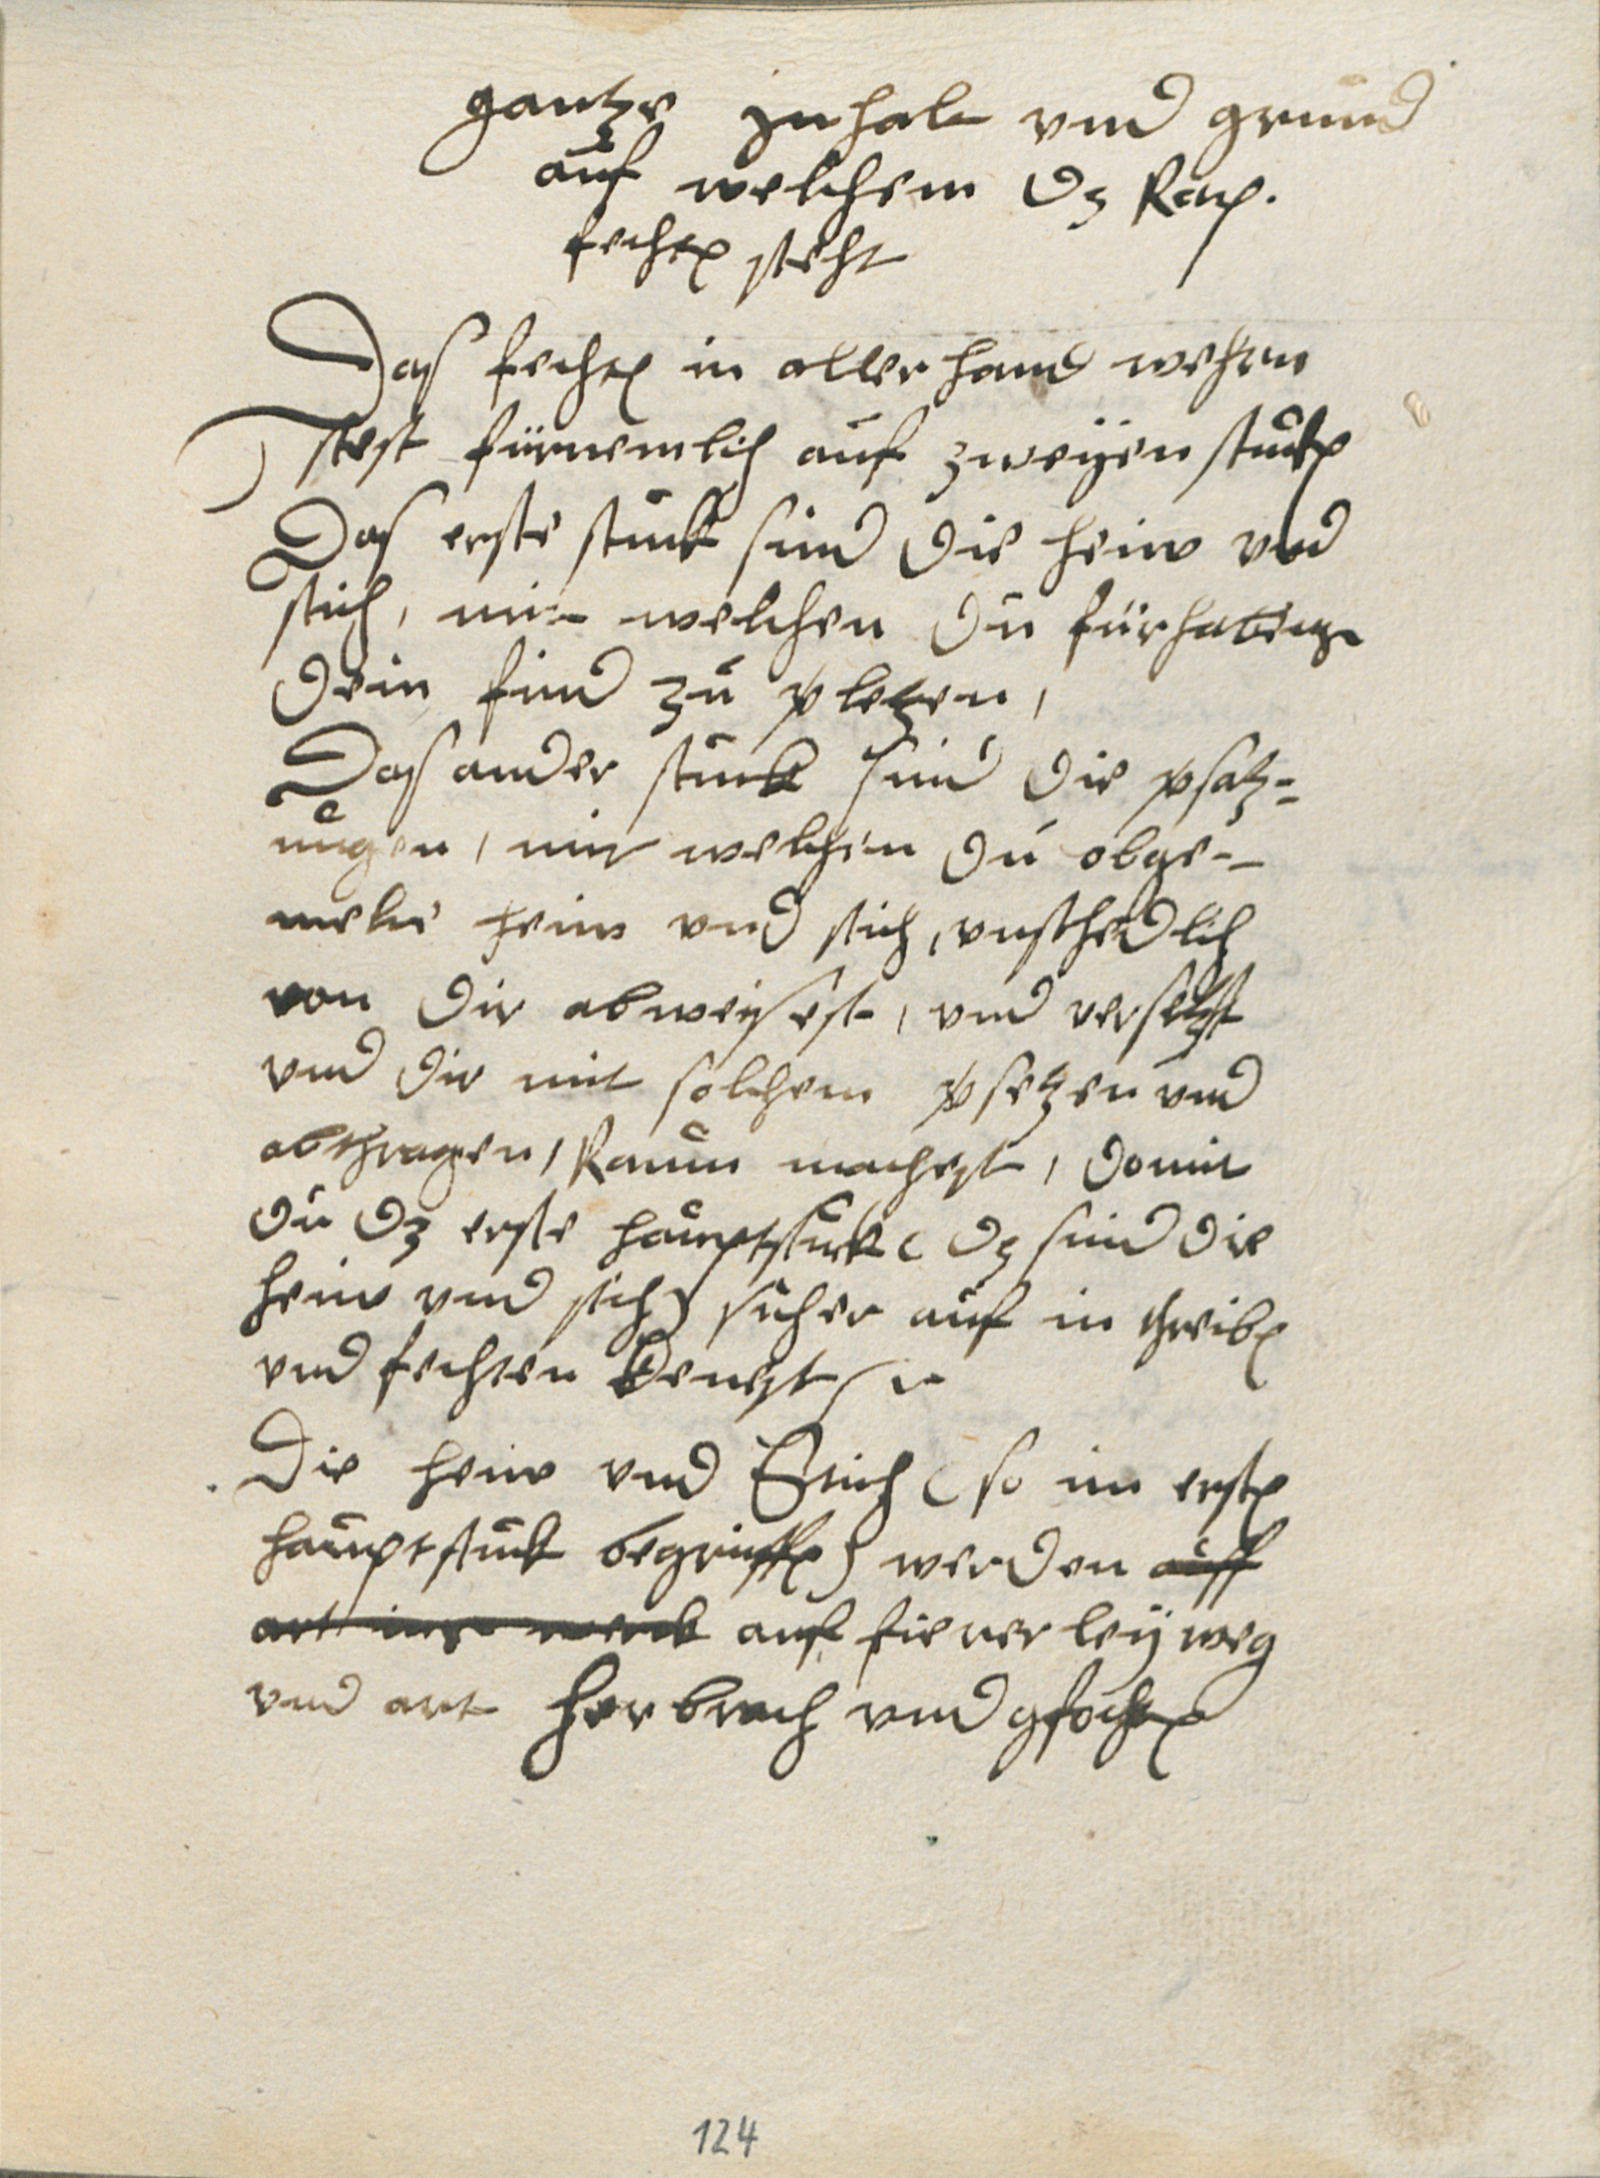 gantze inhalt vnd grund
auf welchem dz Rap.
fechten steht
Das fechten in aller hand wehren
stest fürnemlich auf zweÿen stucken
Das erste stuck sind die heiw vnd
stich, mit welchen du fürhabens
dein find zu vletzen,
Das ander stuck sind die vsatz-
ungen, mit welchen du obge-
melte heiw vnd stich, vnschedlich
von dir abweisest, vnd versetzst
vnd dir mit solchem vsetzen vnd
abthragen, Raum machest, domit
du dz erste hauptstuck (dz sind die
heiw vnd stich) sicher auf in threiben
vnd fechten kenest
Die heiw vnd Stich (so im ersten
hauptstuck begriffen) werden auff
art auf fierer leÿ weg
vnd art herbrach vnd gfochten
124